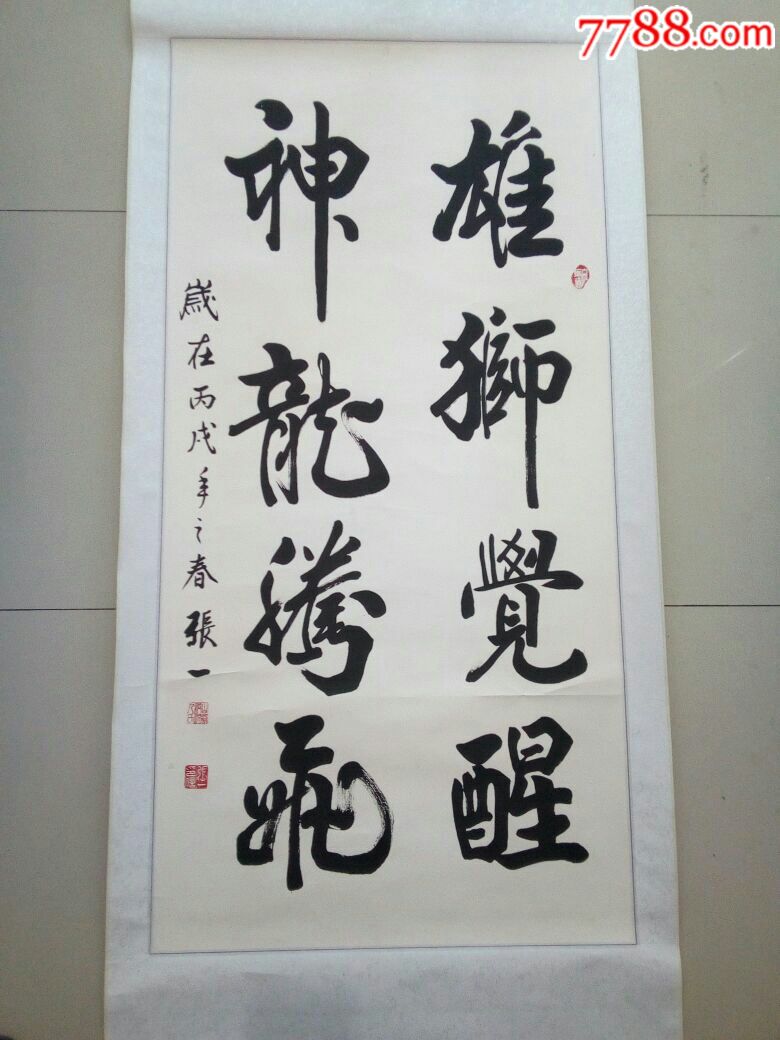 7788.com
雄獅覺醒
神龍騰飛
歲在丙戌年之春 張一